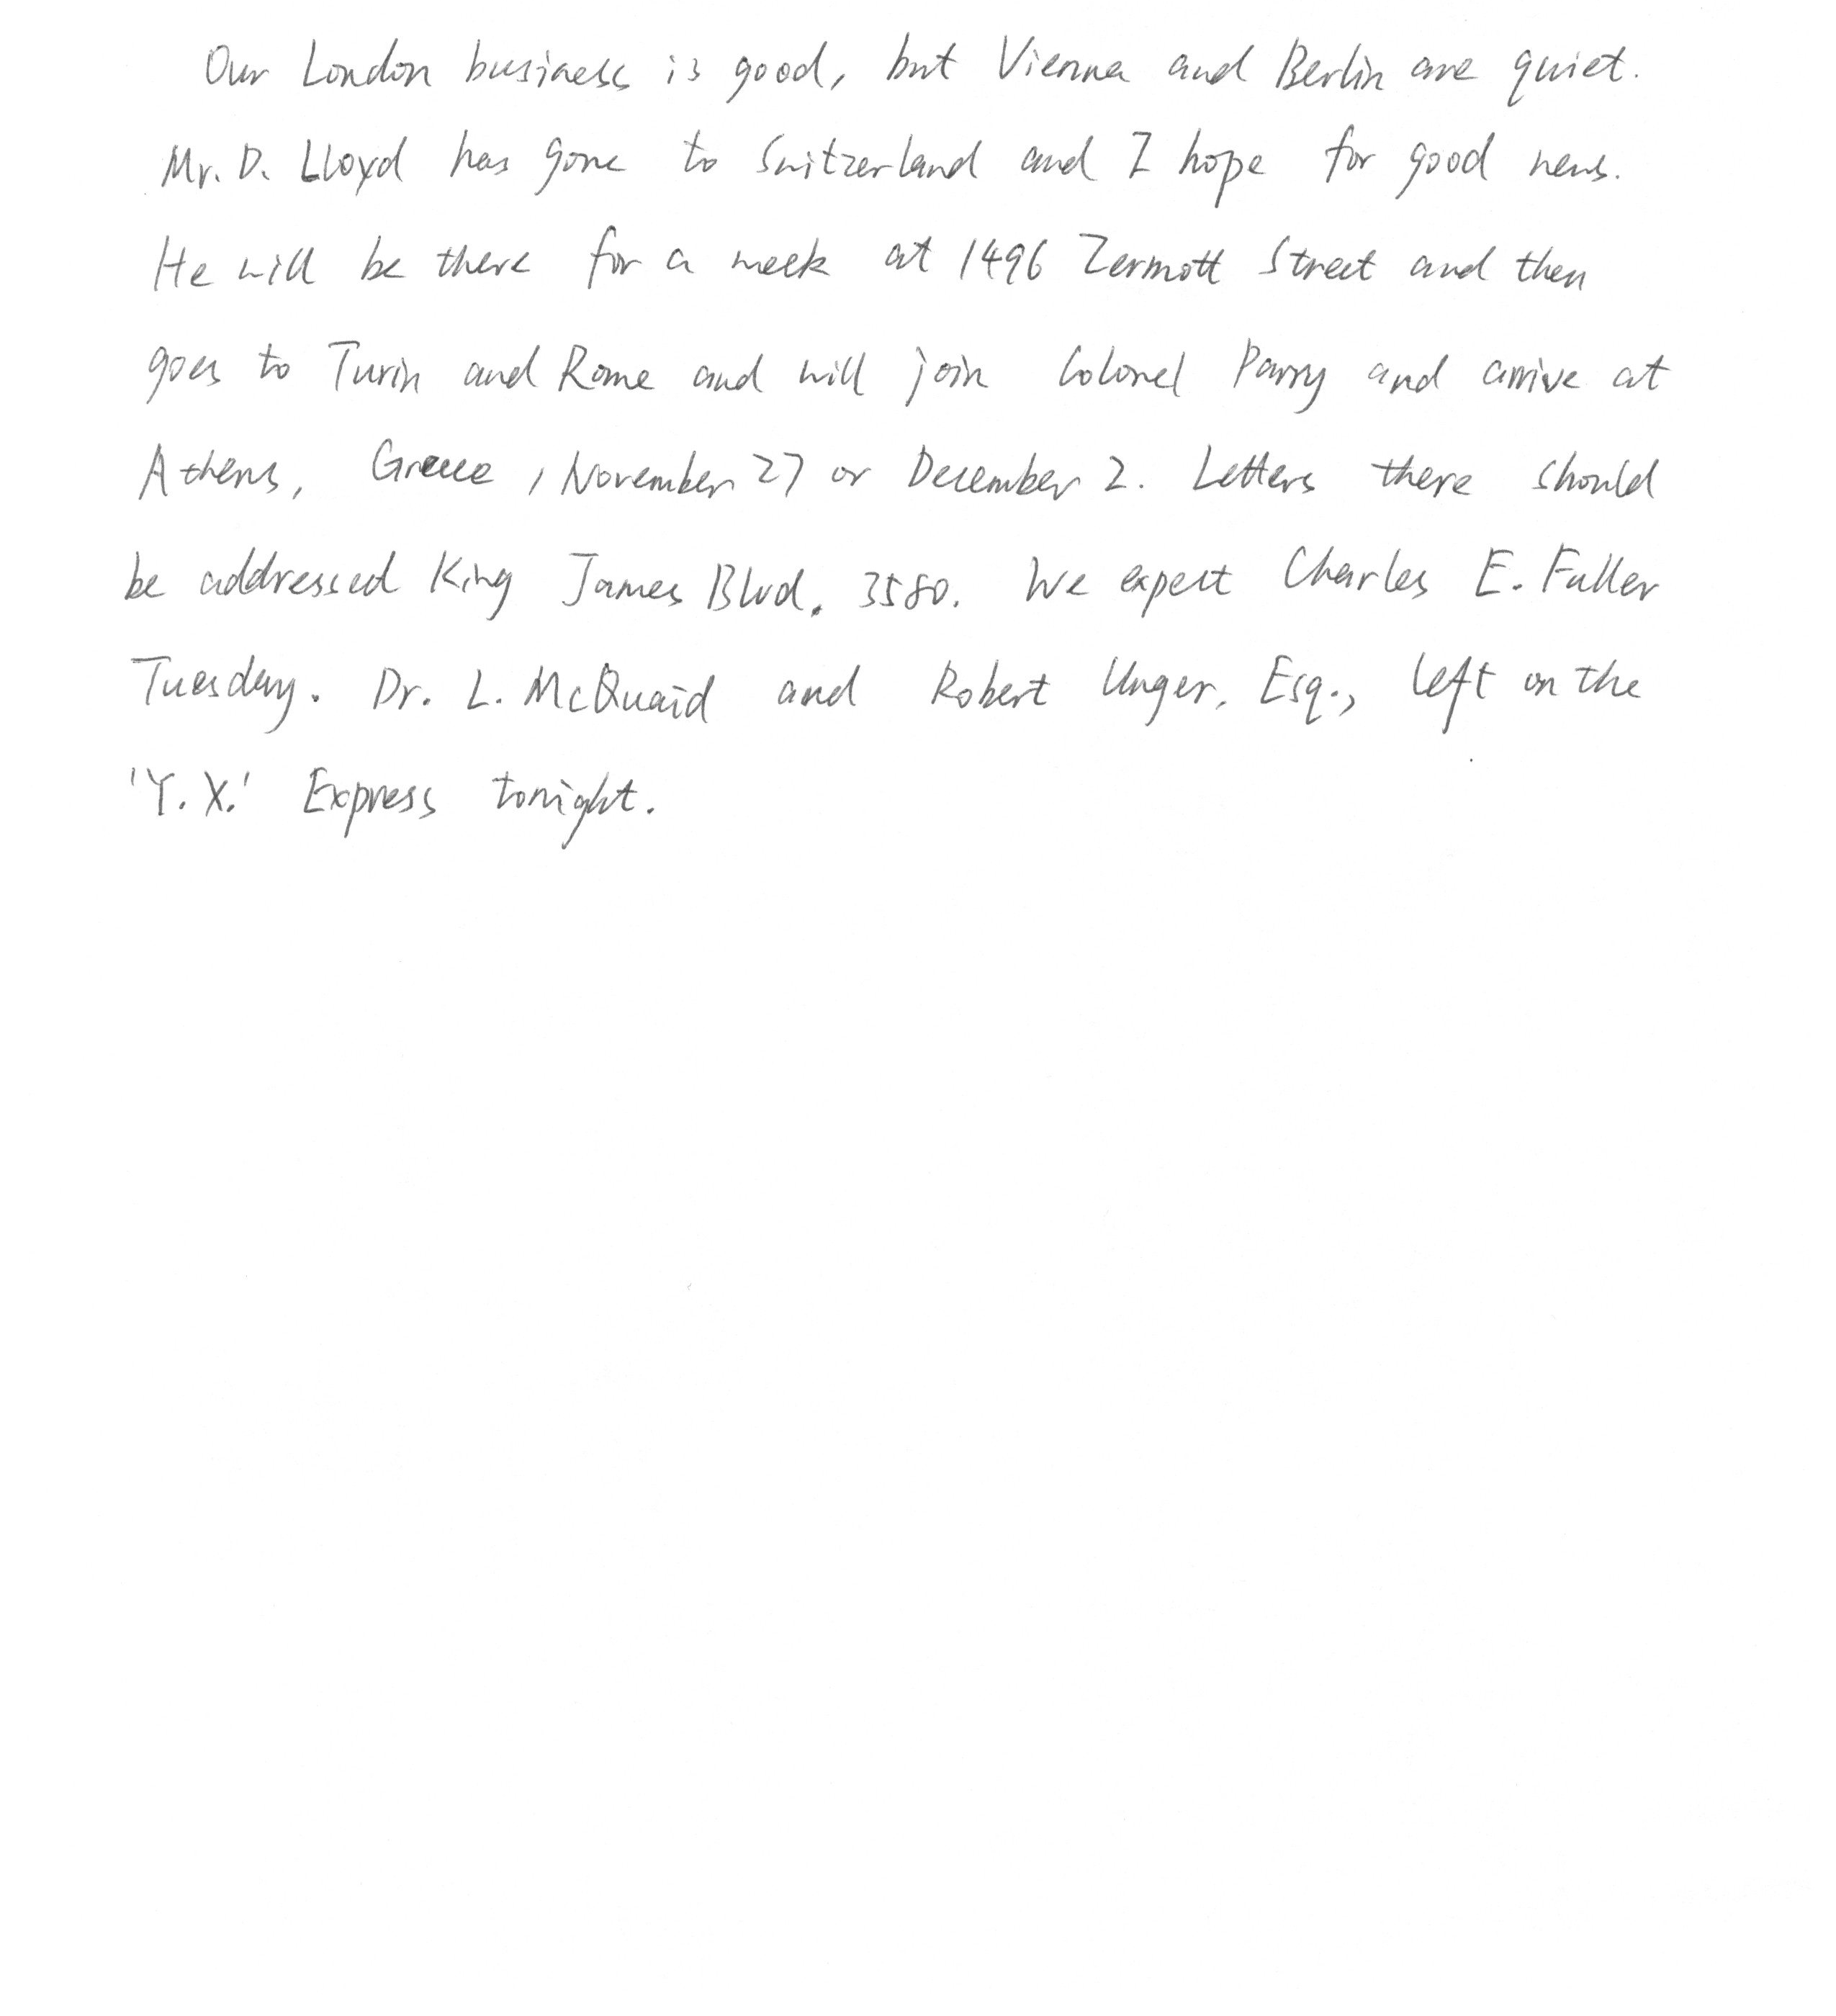 Our London business is good, but Vienna and Berlin are quiet.
Mr. D. Lloyd has gone to Switzerland and I hope for good news.
He will be there for a week at 1496 Zermott Street and then
goes to Turin and Rome and will join Colonel Parry and arrive at
Athens, Greece, November 27 or December 2. Letters there should
be addressed King James Blvd. 3580. We expect Charles E. Fuller
Tuesday. Dr. L. McQuaid and Robert Unger, Esq., left on the
'Y.X.' Express tonight.